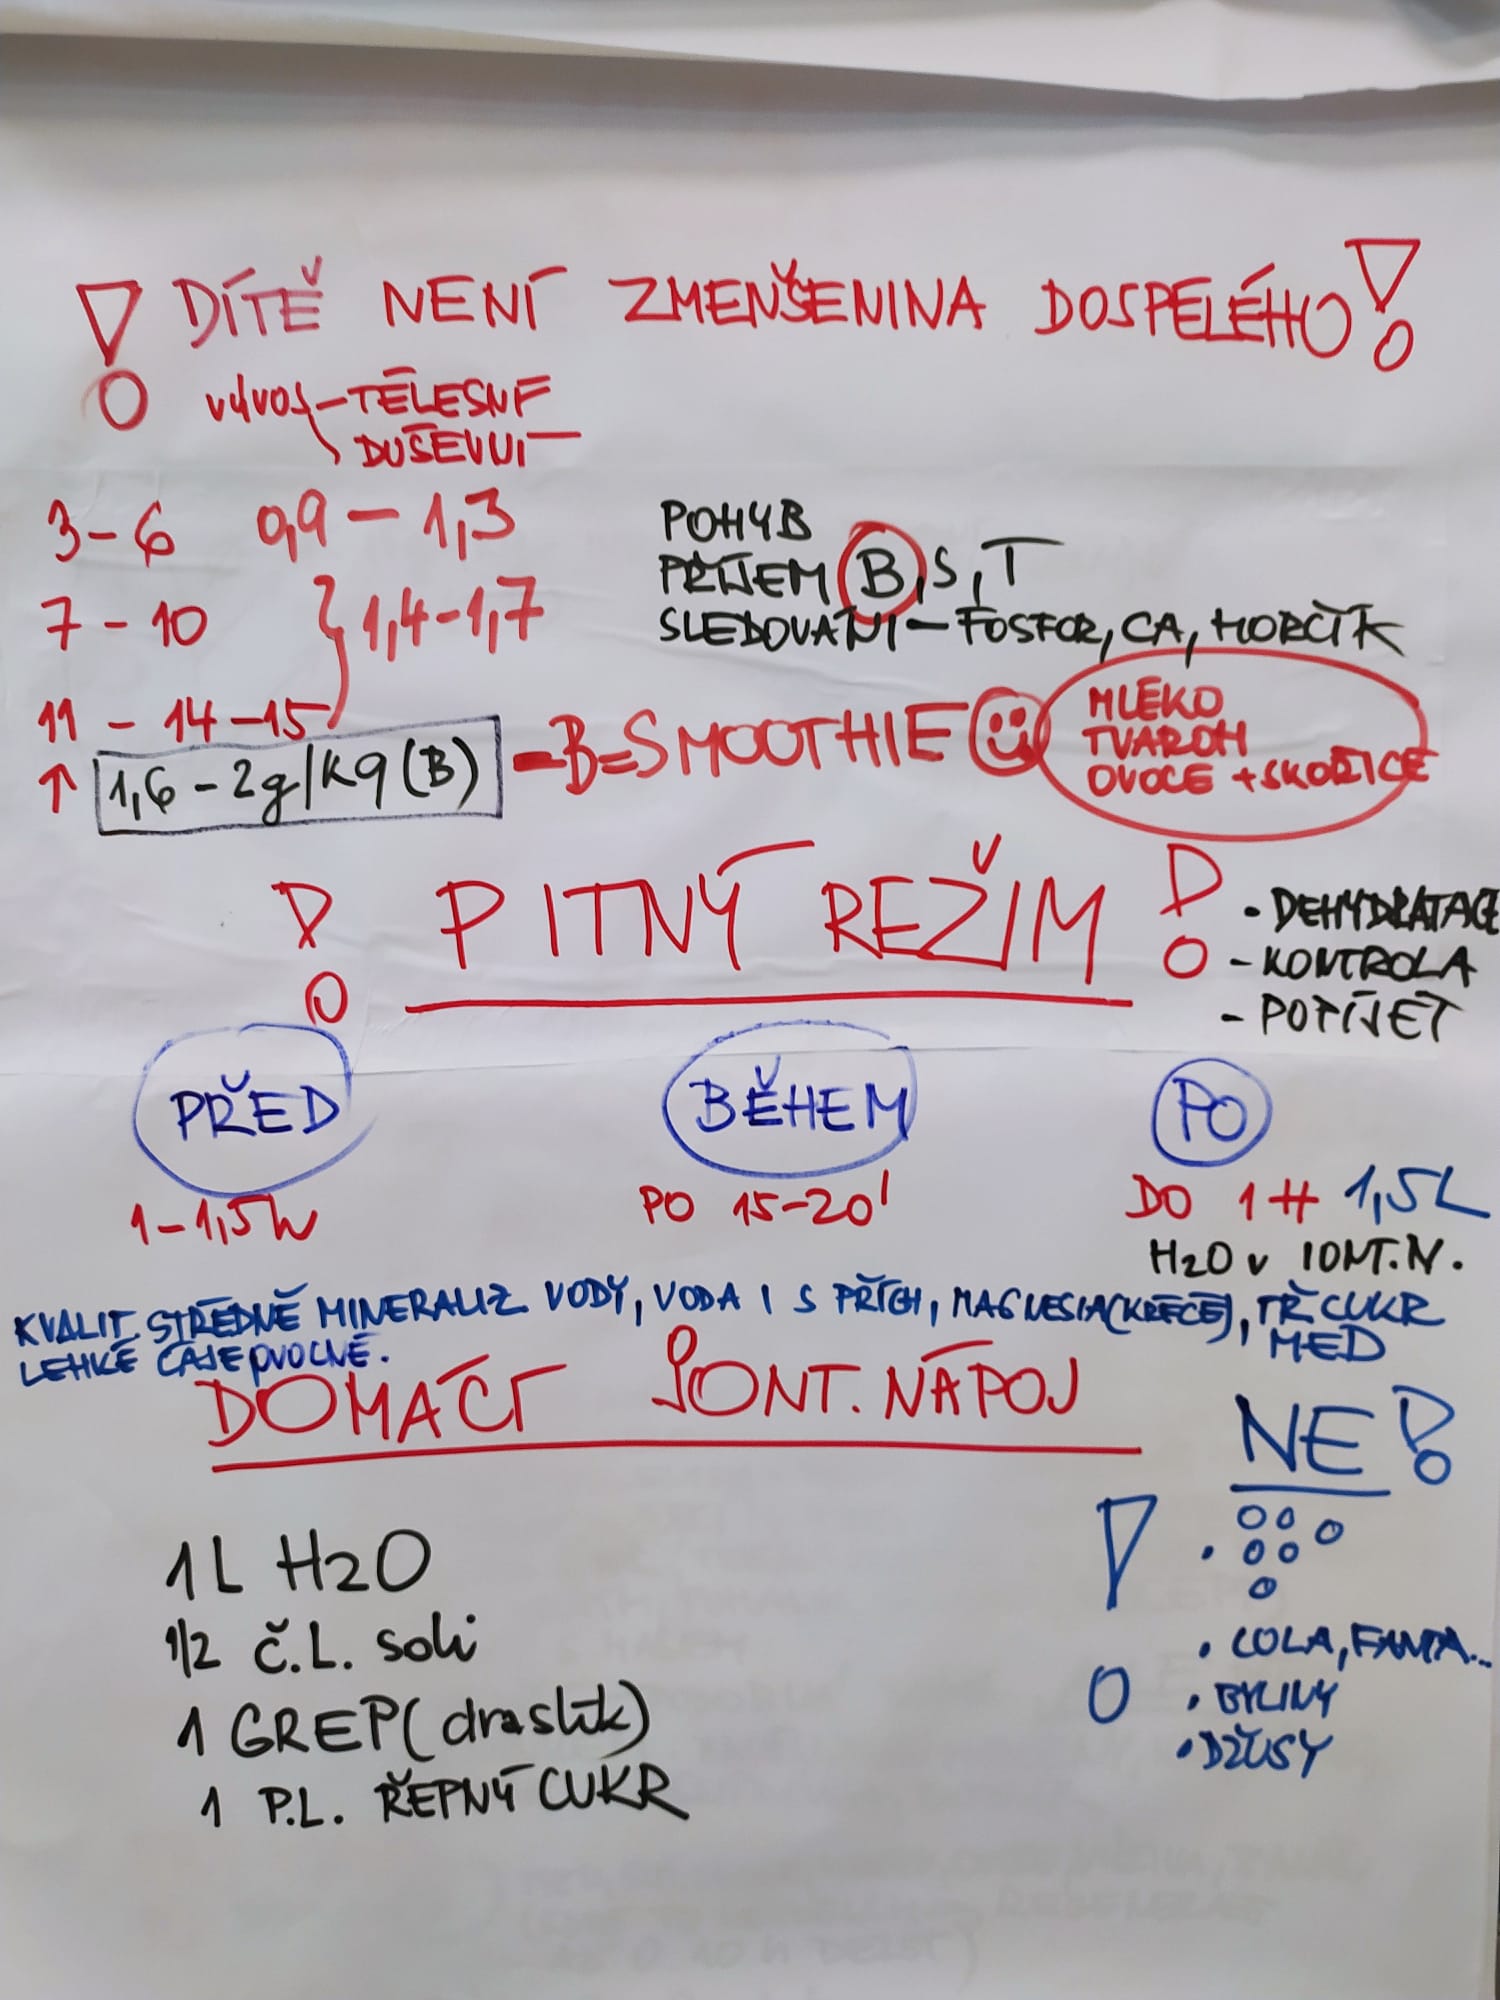 ! DÍTĚ NENÍ ZMENŠENINA DOSPELÉHO !
VÝVOJ - TĚLESNÝ
DUŠEVNÍ
3-6 0,9 - 1,3
7-10 } 1,4-1,7
11 - 14-15
↑ 1,6-2g/kg (B)
POHYB
PŘÍJEM B, S, T
SLEDOVÁNÍ - FOSFOR, CA, HORČÍK
- B = SMOOTHIE
MLÉKO
TVAROH
OVOCE + SKOŘICE
! PITNÝ REŽIM !
• DEHYDRATACE
- KONTROLA
- POPÍJET
PŘED BĚHEM PO
1-1,5h PO 15-20' DO 1H 1,5L
H2O v IONT.N.
KVALIT. STŘEDNĚ MINERALIZ. VODY, VODA I S PŘÍCH, MAGNESIA(KŘEČE), TŘ CUKR
LEHKÉ ČAJE OVOCNÉ. MED
DOMÁCÍ IONT. NÁPOJ
1L H2O
1/2 Č.L. soli
1 GREP (draslík)
1 P.L. ŘEPNÝ CUKR
NE!
!
• COLA, FANTA...
• BYLINY
• DŽUSY